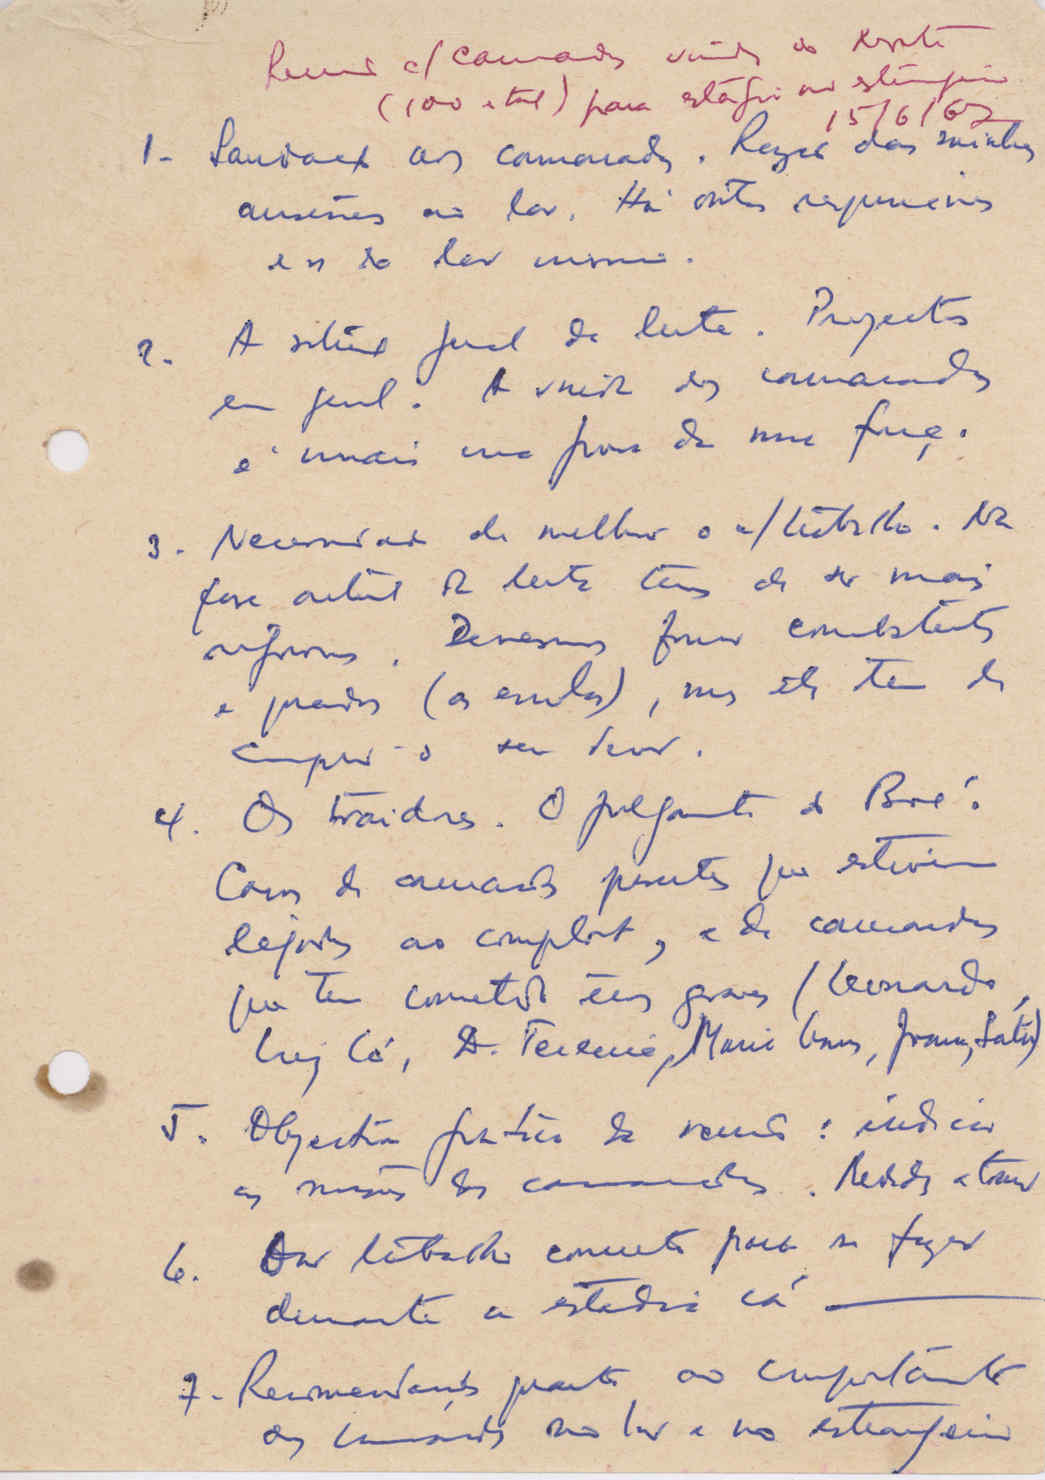 Reunião c/ camaradas vindos do
(100 e tal) para estágio no estrangeiro
15/6/67
1- Saudação aos camaradas. Razão das minhas
ausências ao lar. Há outros responsáveis
e o do lar mesmo.
2. A situação geral da luta. Projectos
em geral. A vinda dos camaradas
é mais uma prova da nossa força.
3. Necessidade de melhorar o n/trabalho. Na
fase actual da luta temos de ser mais
rigorosos. Devemos formar combatentes
e quadros (as escolas), mas eles têm de
cumprir o seu dever.
4. Os traidores. O julgamento do Boé.
Casos de camaradas presentes que estiveram
ligados ao complot, e de camaradas
que têm cometido erros graves (Leonardo,
Luiz Có, D. Teixeira, Mário
5. Objectivo da reunião: indicar
as missões dos camaradas. Medidas a tomar
6. Dar trabalho concreto para se fazer
durante a estadia cá
7- Recomendações quanto ao comportamento
dos camaradas no lar e no estrangeiro